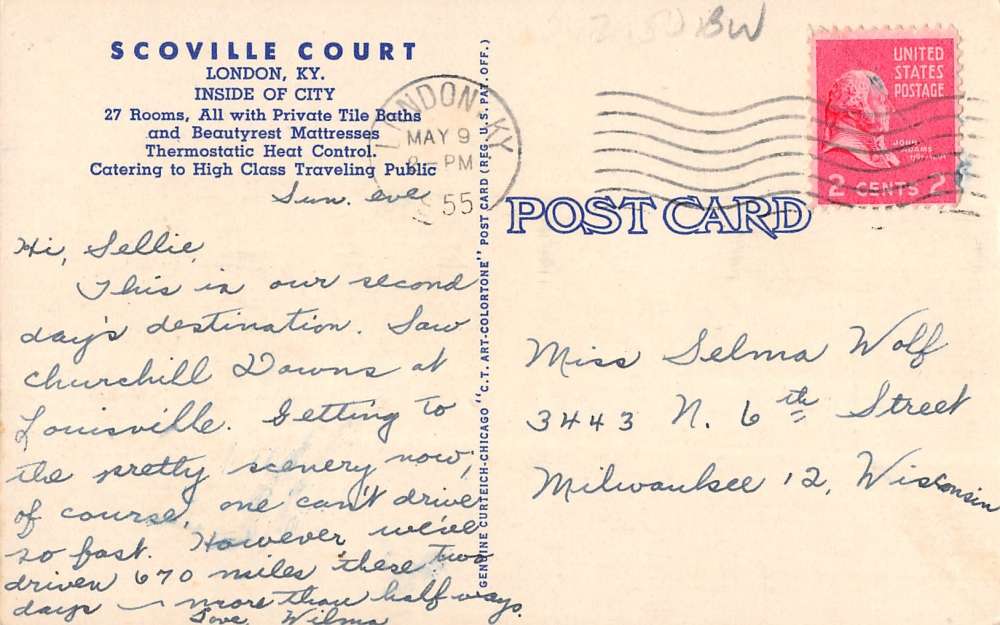 BW
SCOVILLE COURT
LONDON, KY.
INSIDE OF CITY
27 Rooms, All with Private Tile Baths
and Beautyrest Mattresses
Thermostatic Heat Control.
Catering to High Class Traveling Public
Sun. eve
Hi, Sellie,
This is our second
day's destination. Saw
Churchill Downs at
Louisville. Getting to
the pretty scenery now;
of course, one can't drive
so fast. However we've
driven 670 miles these two
days — more than half ways.
Love, Wilma
GENUINE CURTEICH-CHICAGO "C.T. ART-COLORTONE" POST CARD (REG. U.S. PAT. OFF.)
LONDON KY.
MAY 9
PM
55
UNITED
STATES
POSTAGE
JOHN
ADAMS
2 CENTS 2
POST CARD
Miss Selma Wolf
3443 N. 6th Street
Milwaukee 12, Wisconsin